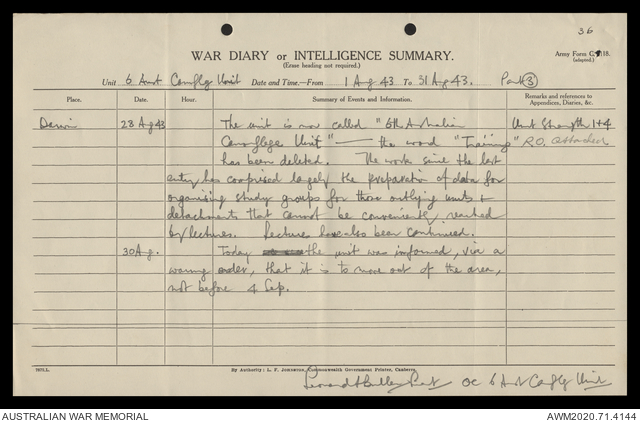 36
WAR DIARY or INTELLIGENCE SUMMARY.
(Erase heading not required.)
Army Form C. 118.
(adapted.)
Unit 6 Aust Camflg Unit Date and Time.—From 1 Aug 43 To 31 Aug 43. Part 3
Place. Date. Hour. Summary of Events and Information. Remarks and references to Appendices, Diaries, &c.
Darwin 28 Aug 43 The unit is now called "6th Australian Unit Strength 1+4
Camouflage Unit" — the word "Training" R.O. attached
has been deleted. The work since the last
entry has comprised largely the preparation of data for
organising study groups for those outlying units &
detachments that cannot be conveniently reached
by lectures. Lectures have also been continued.
30 Aug. Today the unit was informed, via a
warning order, that it is to move out of the area,
not before 4 Sep.
By Authority: L. F. Johnston, Commonwealth Government Printer, Canberra.
OC 6 Aust Camflg Unit
AUSTRALIAN WAR MEMORIAL
AWM2020.71.4144